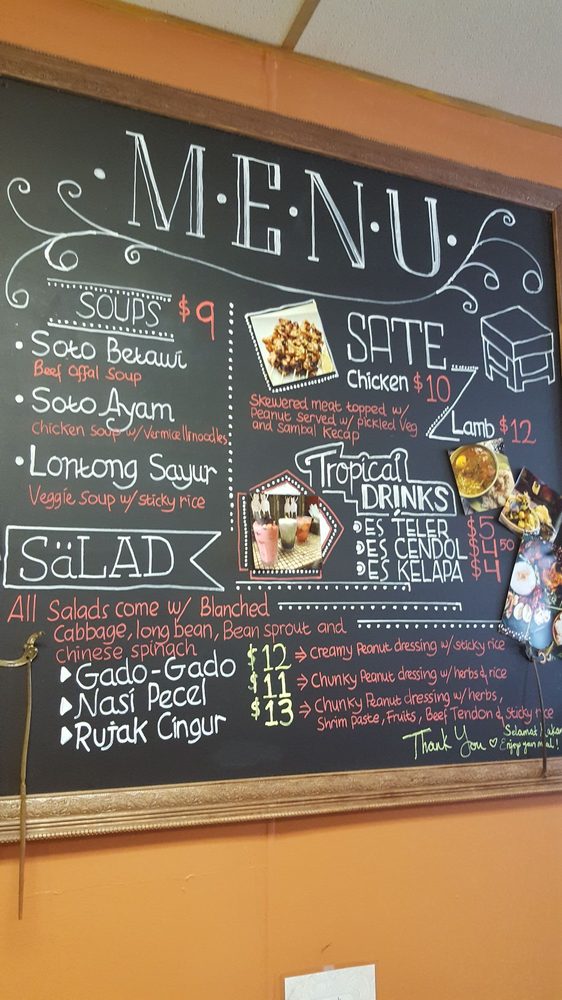 M.E.N.U.
SOUPS $9
Soto Betawi
Beef Offal Soup
Soto Ayam
Chicken Soup w/ Vermicelli noodles
Lontong Sayur
Veggie Soup w/ sticky rice
SATE
Chicken $10
Lamb $12
Skewered meat topped w/
Peanut Served w/ pickled Veg
and Sambal Kecap
Tropical
DRINKS
ES TELER $5
ES CENDOL $4.50
ES KELAPA $4
SäLAD
All Salads come w/ Blanched
Cabbage, long bean, Bean sprout and
chinese spinach
Gado-Gado $12 → Creamy Peanut dressing w/ sticky rice
Nasi Pecel $11 → Chunky Peanut dressing w/ herbs & rice
Rujak Cingur $13 → Chunky Peanut dressing w/ herbs,
Shrim paste, Fruits, Beef Tendon & Sticky rice
Thank You ♡
Selamat
Enjoy your meal!